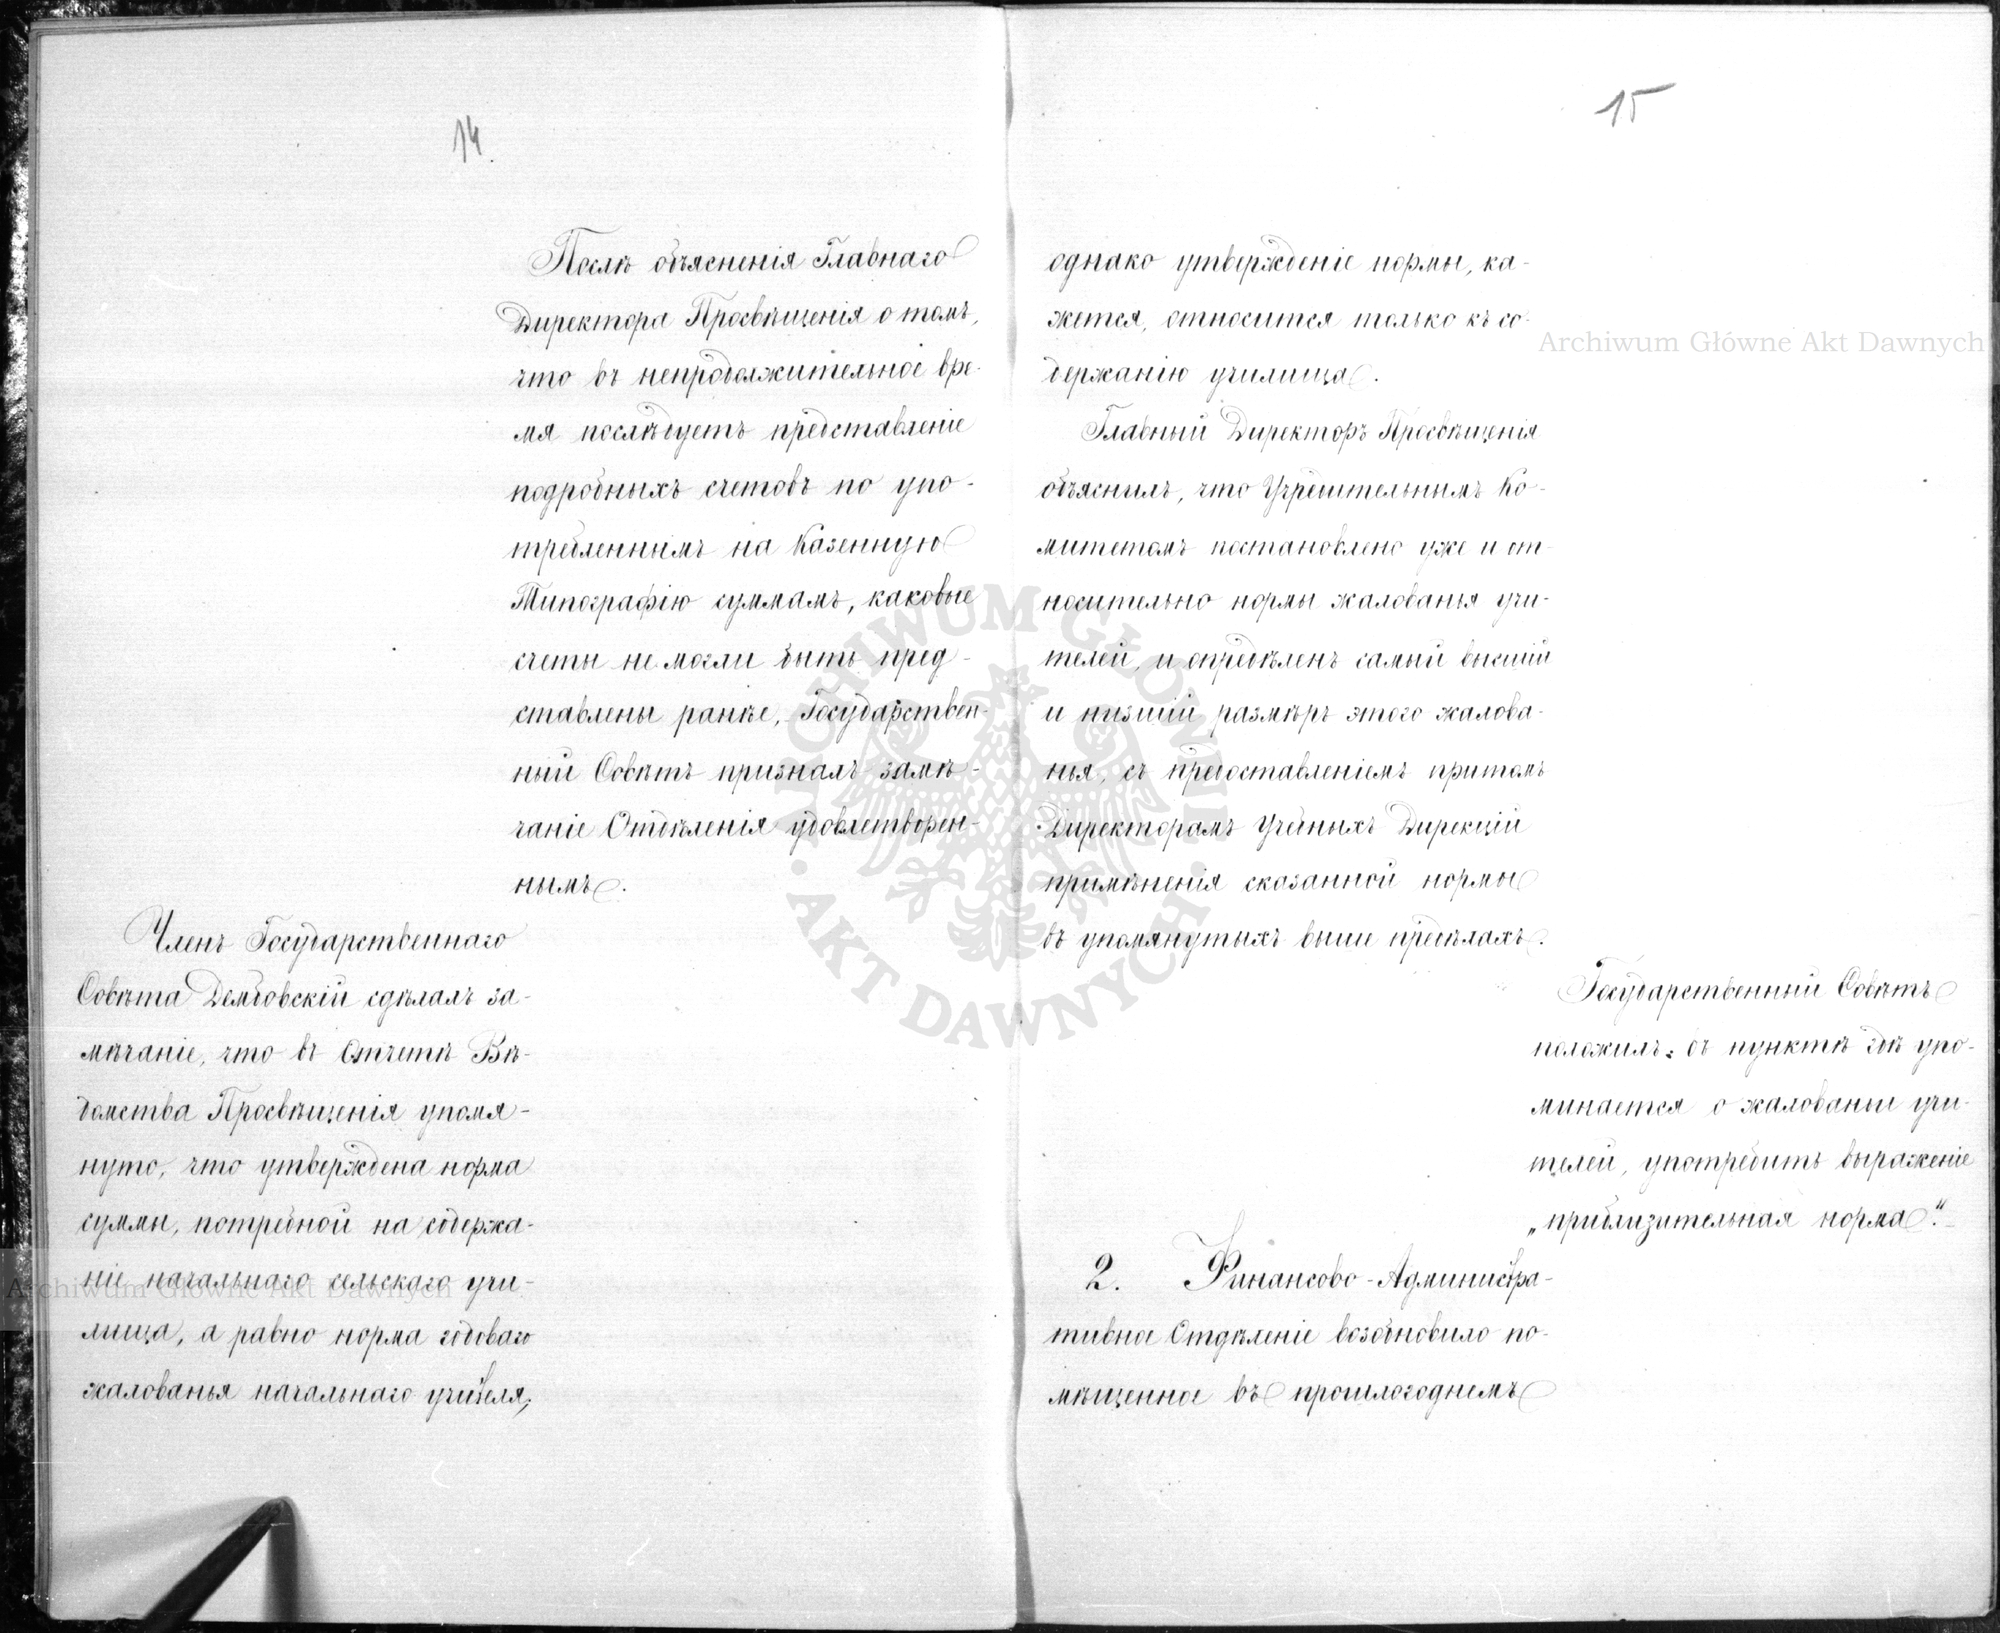 14.
Послѣ объясненія Главнаго
Директора Просвѣщенія о томъ,
что въ непродолжительное вре-
мя послѣдуетъ представленіе
подробныхъ счетовъ по упо-
требленнымъ на Казенную
Типографію суммамъ, каковые
счеты не могли быть пред-
ставлены ранѣе, Государствен-
ный Совѣтъ призналъ замѣ-
чаніе Отдѣленія удовлетворен-
нымъ.
Членъ Государственнаго
Совѣта Дембовскій сдѣлалъ за-
мѣчаніе, что въ Отчетѣ Вѣ-
домства Просвѣщенія упомя-
нуто, что утверждена норма
суммы, потребной на содержа-
ніе начальнаго сельскаго учи-
лища, а равно норма годоваго
жалованья начальнаго учителя,
15
однако утвержденіе нормы, ка-
жется, относится только къ со-
держанію училища.
Главный Директоръ Просвѣщенія
объяснилъ, что Учредительнымъ Ко-
митетомъ постановлено уже и от-
носительно нормы жалованья учи-
телей, и опредѣленъ самый высшій
и низшій размѣръ этого жалова-
нья, съ предоставленіемъ притомъ
Директорамъ Учебныхъ Дирекцій
примѣненія сказанной нормы
въ упомянутыхъ выше предѣлахъ.
Государственный Совѣтъ
положилъ: въ пунктѣ гдѣ упо-
минается о жалованьи учи-
телей, употребить выраженіе
„приблизительная норма".
2. Финансово-Администра-
тивное Отдѣленіе возобновило по-
мѣщенное въ прошлогоднемъ
Archiwum Główne Akt Dawnych
Archiwum Główne Akt Dawnych
ARCHIWUM GŁÓWNE · AKT DAWNYCH ·